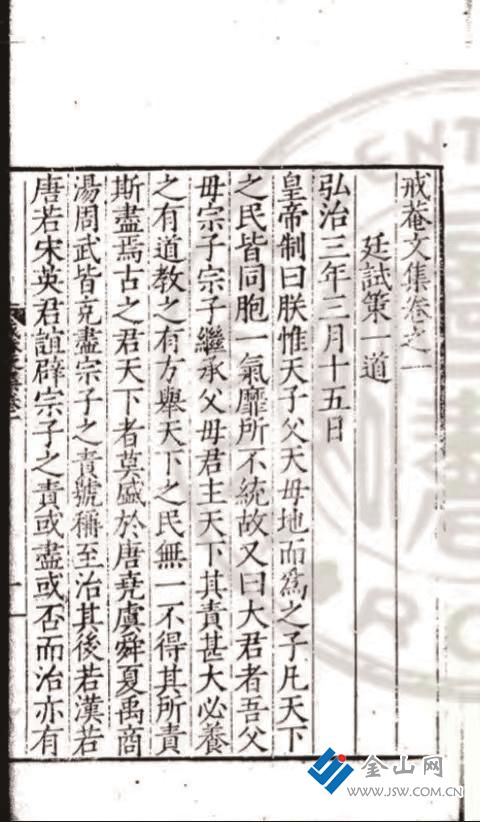 戒菴文集卷之一
廷試策一道
弘治三年三月十五日
皇帝制曰朕惟天子父天母地而爲之子凡天下
之民皆同胞一氣靡所不統故又曰大君者吾父
母宗子宗子繼承父母君主天下其責甚大必養
之有道教之有方舉天下之民無一不得其所責
斯盡焉古之君天下者莫盛於唐堯虞舜夏禹商
湯周武皆克盡宗子之責號稱至治其後若漢若
唐若宋英君誼辟宗子之責或盡或否而治亦有
一
金山网
WWW.JSW.COM.CN